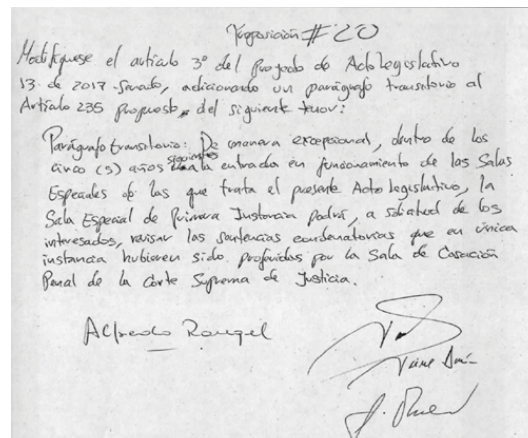 Proposición #20
Modifíquese el artículo 3º del Proyecto de Acto Legislativo
13 de 2017 Senado, adicionando un parágrafo transitorio al
Artículo 235 propuesto, del siguiente tenor:
Parágrafo transitorio: De manera excepcional, dentro de los
cinco (5) años siguientes a la entrada en funcionamiento de las Salas
Especiales de las que trata el presente Acto legislativo, la
Sala Especial de Primera Instancia podrá, a solicitud de los
interesados, revisar las sentencias condenatorias que en única
instancia hubieren sido proferidas por la Sala de Casación
Penal de la Corte Suprema de Justicia.
Alfredo Rangel